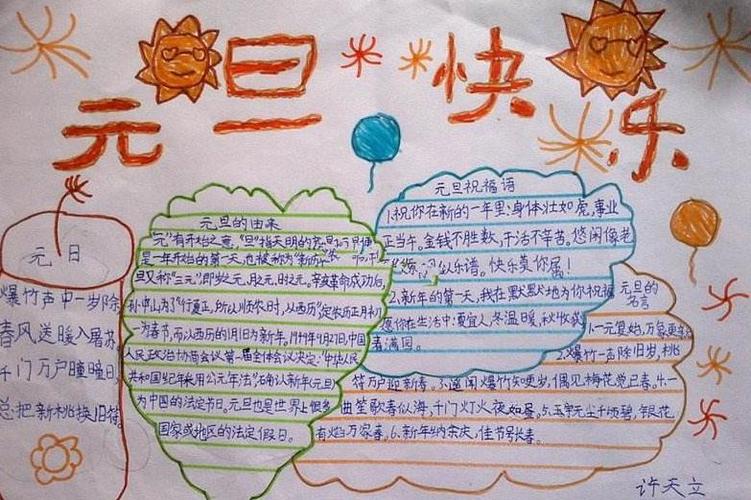 元旦快乐
元日
爆竹声中一岁除
春风送暖入屠苏
千门万户曈曈日
总把新桃换旧符
元旦的由来
"元"有开始之意,"旦"指天明的
是一年开始的第一天,也被称为"新历
旦又称"三元"即岁之元、月之元、时之元。辛亥革命成功后,
孙中山为了"行夏正,所以顺农时,从西历"定农历正月初
一为春节,而以西历的1月1日为新年。1949年9月27日,中国
人民政治协商会议第一届全体会议决定:"中华人民
共和国纪年采用公元年法"
为中国的法定节日。元旦也是世界上很多
国家或地区的法定假日。
元旦祝福语
1.祝你在新的一年里:身体壮如虎,事业
正当午,金钱不胜数,干活不辛苦。悠闲像老
以乐谱。快乐莫你属!
2.新年的第一天,我在默默地为你祝福
愿你在生活中:夏宜人,冬温暖,秋收获
春满园。
元旦的
名言
1.一元复始,万象更新
2.爆竹一声除旧岁,桃
符万户迎新春。3.遥闻爆竹知更岁,偶见梅花觉已春。4.一
曲笙歌春似海,千门灯火夜如昼。5.玉宇无尘千顷碧,银花
有焰万家春。6.新年纳余庆,佳节号长春。
许天立